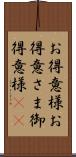 お得意様お
得意さま御
得意様